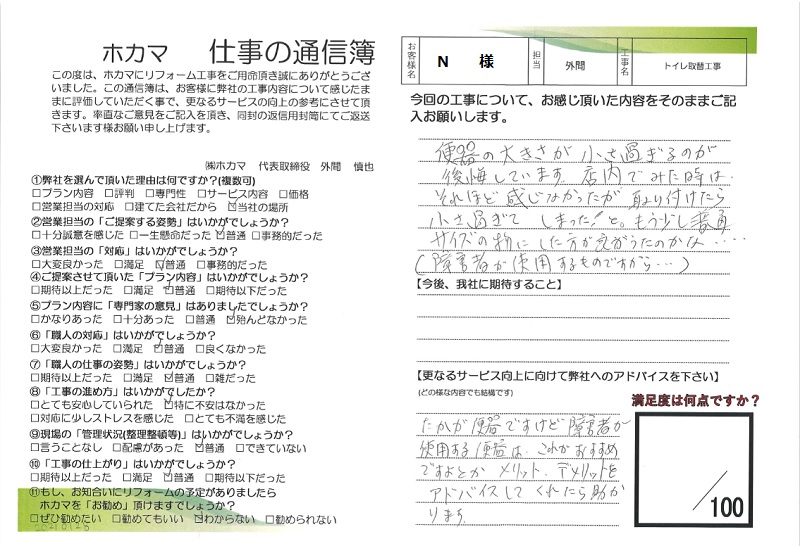 ホカマ 仕事の通信簿
この度は、ホカマにリフォーム工事をご用命頂き誠にありがとうござ
いました。この通信簿は、お客様に弊社の工事内容について感じたま
まに評価していただく事で、更なるサービスの向上の参考にさせて頂
きます。率直なご意見をご記入を頂き、同封の返信用封筒にてご返送
下さいます様お願い申し上げます。
㈱ホカマ 代表取締役 外間 慎也
①弊社を選んで頂いた理由は何ですか?(複数可)
□プラン内容 □評判 □専門性 □サービス内容 □価格
□営業担当の対応 □建てた会社だから ☑当社の場所
②営業担当の「ご提案する姿勢」はいかがでしょうか?
□十分誠意を感じた □一生懸命だった ☑普通 □事務的だった
③営業担当の「対応」はいかがでしょうか?
□大変良かった □満足 ☑普通 □事務的だった
④ご提案させて頂いた「プラン内容」はいかがでしょうか?
□期待以上だった □満足 ☑普通 □期待以下だった
⑤プラン内容に「専門家の意見」はありましたでしょうか?
□かなりあった □十分あった □普通 ☑殆んどなかった
⑥「職人の対応」はいかがでしょうか?
□大変良かった □満足 ☑普通 □良くなかった
⑦「職人の仕事の姿勢」はいかがでしょうか?
□期待以上だった □満足 ☑普通 □雑だった
⑧「工事の進め方」はいかがでしたか?
□とても安心していられた ☑特に不安はなかった
□対応に少しストレスを感じた □とても不満を感じた
⑨現場の「管理状況(整理整頓等)」はいかがでしょうか?
□言うことなし □配慮があった ☑普通 □できていない
⑩「工事の仕上がり」はいかがでしょうか?
□期待以上だった □満足 ☑普通 □期待以下だった
⑪もし、お知合いにリフォームの予定がありましたら
ホカマを「お勧め」頂けますでしょうか?
□ぜひ勧めたい □勧めてもいい ☑わからない □勧められない
お客様名 N 様 担当 外間 工事名 トイレ取替工事
今回の工事について、お感じ頂いた内容をそのままご記
入お願いします。
便器の大きさが小さ過ぎるのが
後悔しています。店内でみた時は
それほど感じなかったが取り付けたら
小さ過ぎてしまった!と。もう少し普通
サイズの物にした方が良かったのかな……
(障害者が使用するものですから…)
【今後、我社に期待すること】
【更なるサービス向上に向けて弊社へのアドバイスを下さい】
(どの様な内容でも結構です)
たかが便器ですけど障害者が
使用する便器は、これがおすすめ
ですよとか メリット、デメリットを
アドバイスしてくれたら助か
ります。
満足度は何点ですか?
/100